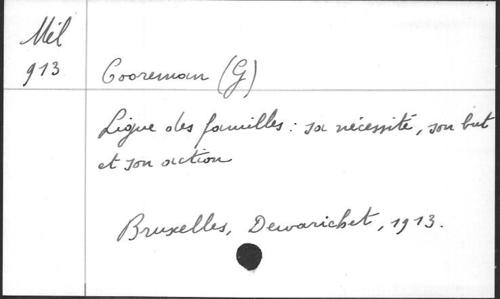 Mél
913
Cooreman (G)
Ligue des familles : sa nécessité, son but
et son action
Bruxelles, Dewarichet, 1913.